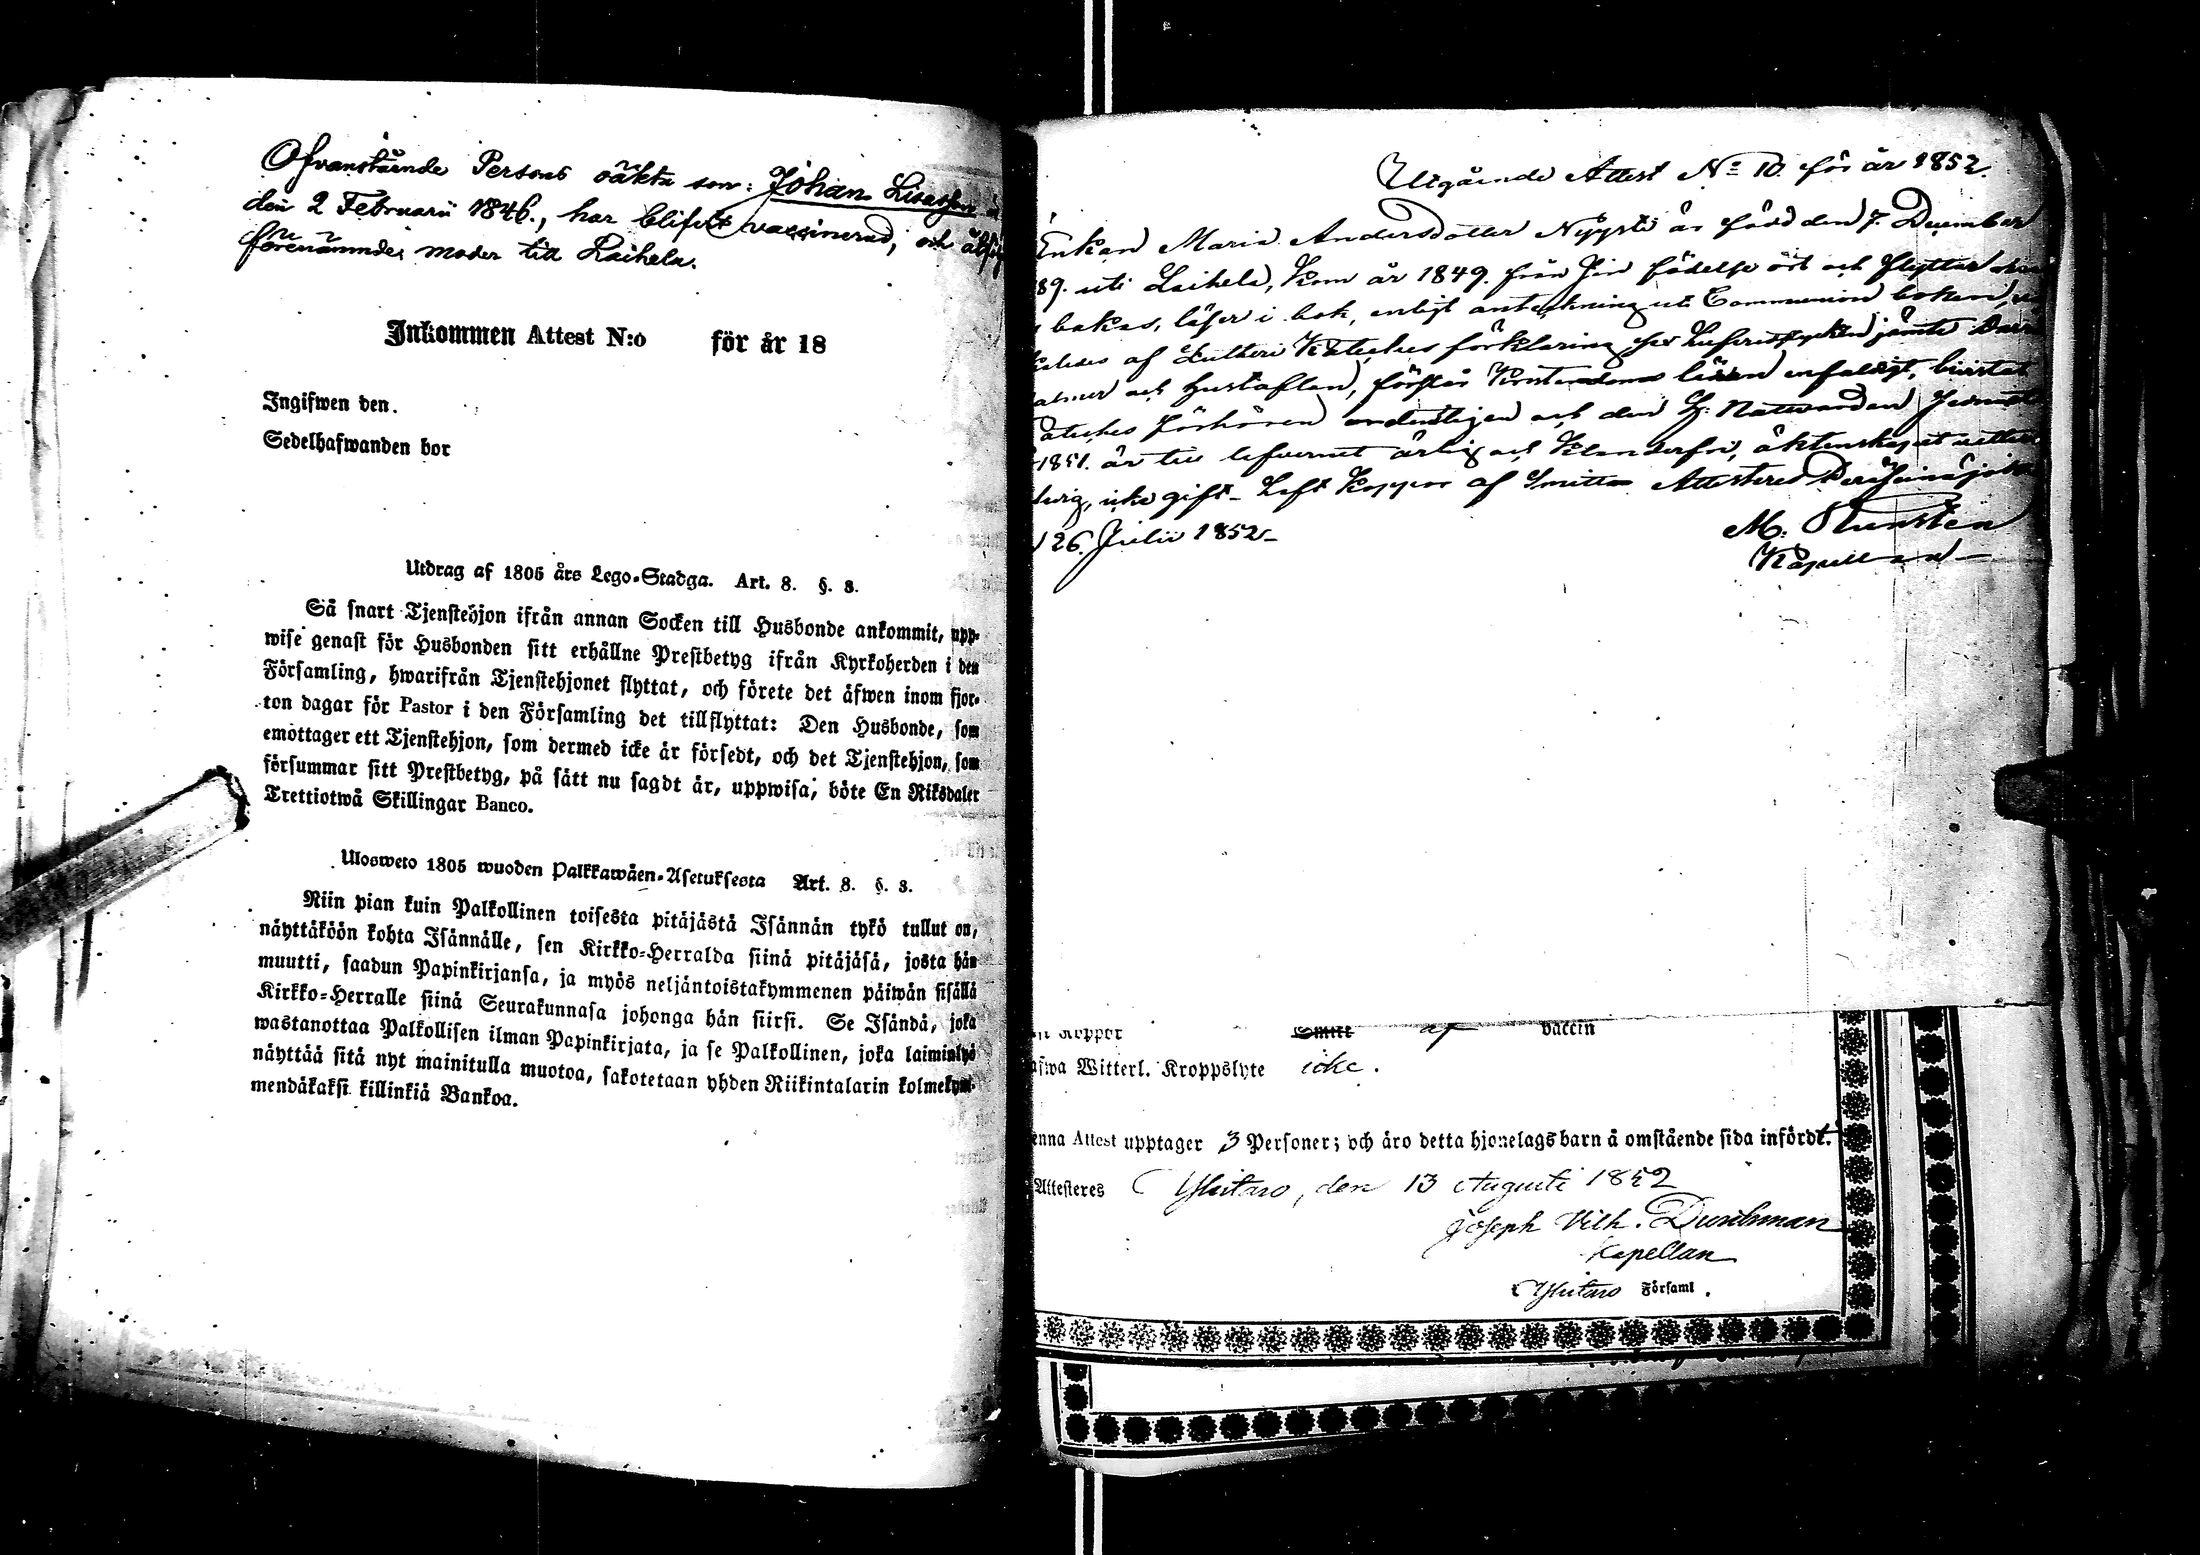 Ofvanstående Persons oäkta son: Johan Lisasson
den 2 Februarii 1846., har blifvit vaccinerad, och
förenämnde moder till Laihela.
Inkommen Attest N:o för år 18
Ingifwen den.
Sedelhafwanden bor
Utdrag af 1805 års Lego-Stadga. Art. 8. §. 3.
Så snart Tjenstehjon ifrån annan Socken till Husbonde ankommit, upp-
wise genast för Husbonden sitt erhållne Prestbetyg ifrån Kyrkoherden i den
Församling, hwarifrån Tjenstehjonet flyttat, och förete det äfwen inom fjor-
ton dagar för Pastor i den Församling det tillflyttat: Den Husbonde, som
emottager ett Tjenstehjon, som dermed icke är försedt, och det Tjenstehjon, som
försummar sitt Prestbetyg, på sätt nu sagdt är, uppwisa, böte En Riksdaler
Trettiotwå Skillingar Banco.
Ulosweto 1805 wuoden Palkkawäen-Asetuksesta Art. 8. §. 3.
Niin pian kuin Palkollinen toisesta pitäjästä Isännän tykö tullut on,
näyttäköön kohta Isännälle, sen Kirkko-Herralda siinä pitäjäsä, josta hän
muutti, saadun Papinkirjansa, ja myös neljäntoistakymmenen päiwän sisällä
Kirkko-Herralle siinä Seurakunnasa johonga hän siirsi. Se Isändä, joka
wastanottaa Palkollisen ilman Papinkirjata, ja se Palkollinen, joka laiminlyö
näyttää sitä nyt mainitulla muotoa, sakotetaan yhden Riikintalarin kolmekym-
mendäkaksi killinkiä Bankoa.
Utgående Attest No 10. för år 1852.
Enkan Maria Andersdotter Nygsti är född den 7. December
89. uti Laihela, kom år 1849. från sin födelse ort och flyttar
bakas, läser i bok, enligt anteckning uti Communion boken,
af Lutheri Kateches förklaring jämte
och Hustaflan, förstår Kristendoms läran enfaldigt, bivistat
förhören ordentligen och den H. Nattvarden
1851. är till lefvernet ärlig och klanderfri, äktenskapet
icke gift. Haft Koppor af Smitta Attesteras Peräseinäjoki
26. Julii 1852.
M.
Kapellan
Koppor Smitt af vaccin
Witterl. Kroppslyte icke.
enna Attest upptager 3 Personer; och äro detta hjonelags barn å omstående sida infördt.
Attesteres Ylistaro, den 13 Augusti 1852
Joseph Vilh. Durchman
Kapellan
i Ylistaro Församl.